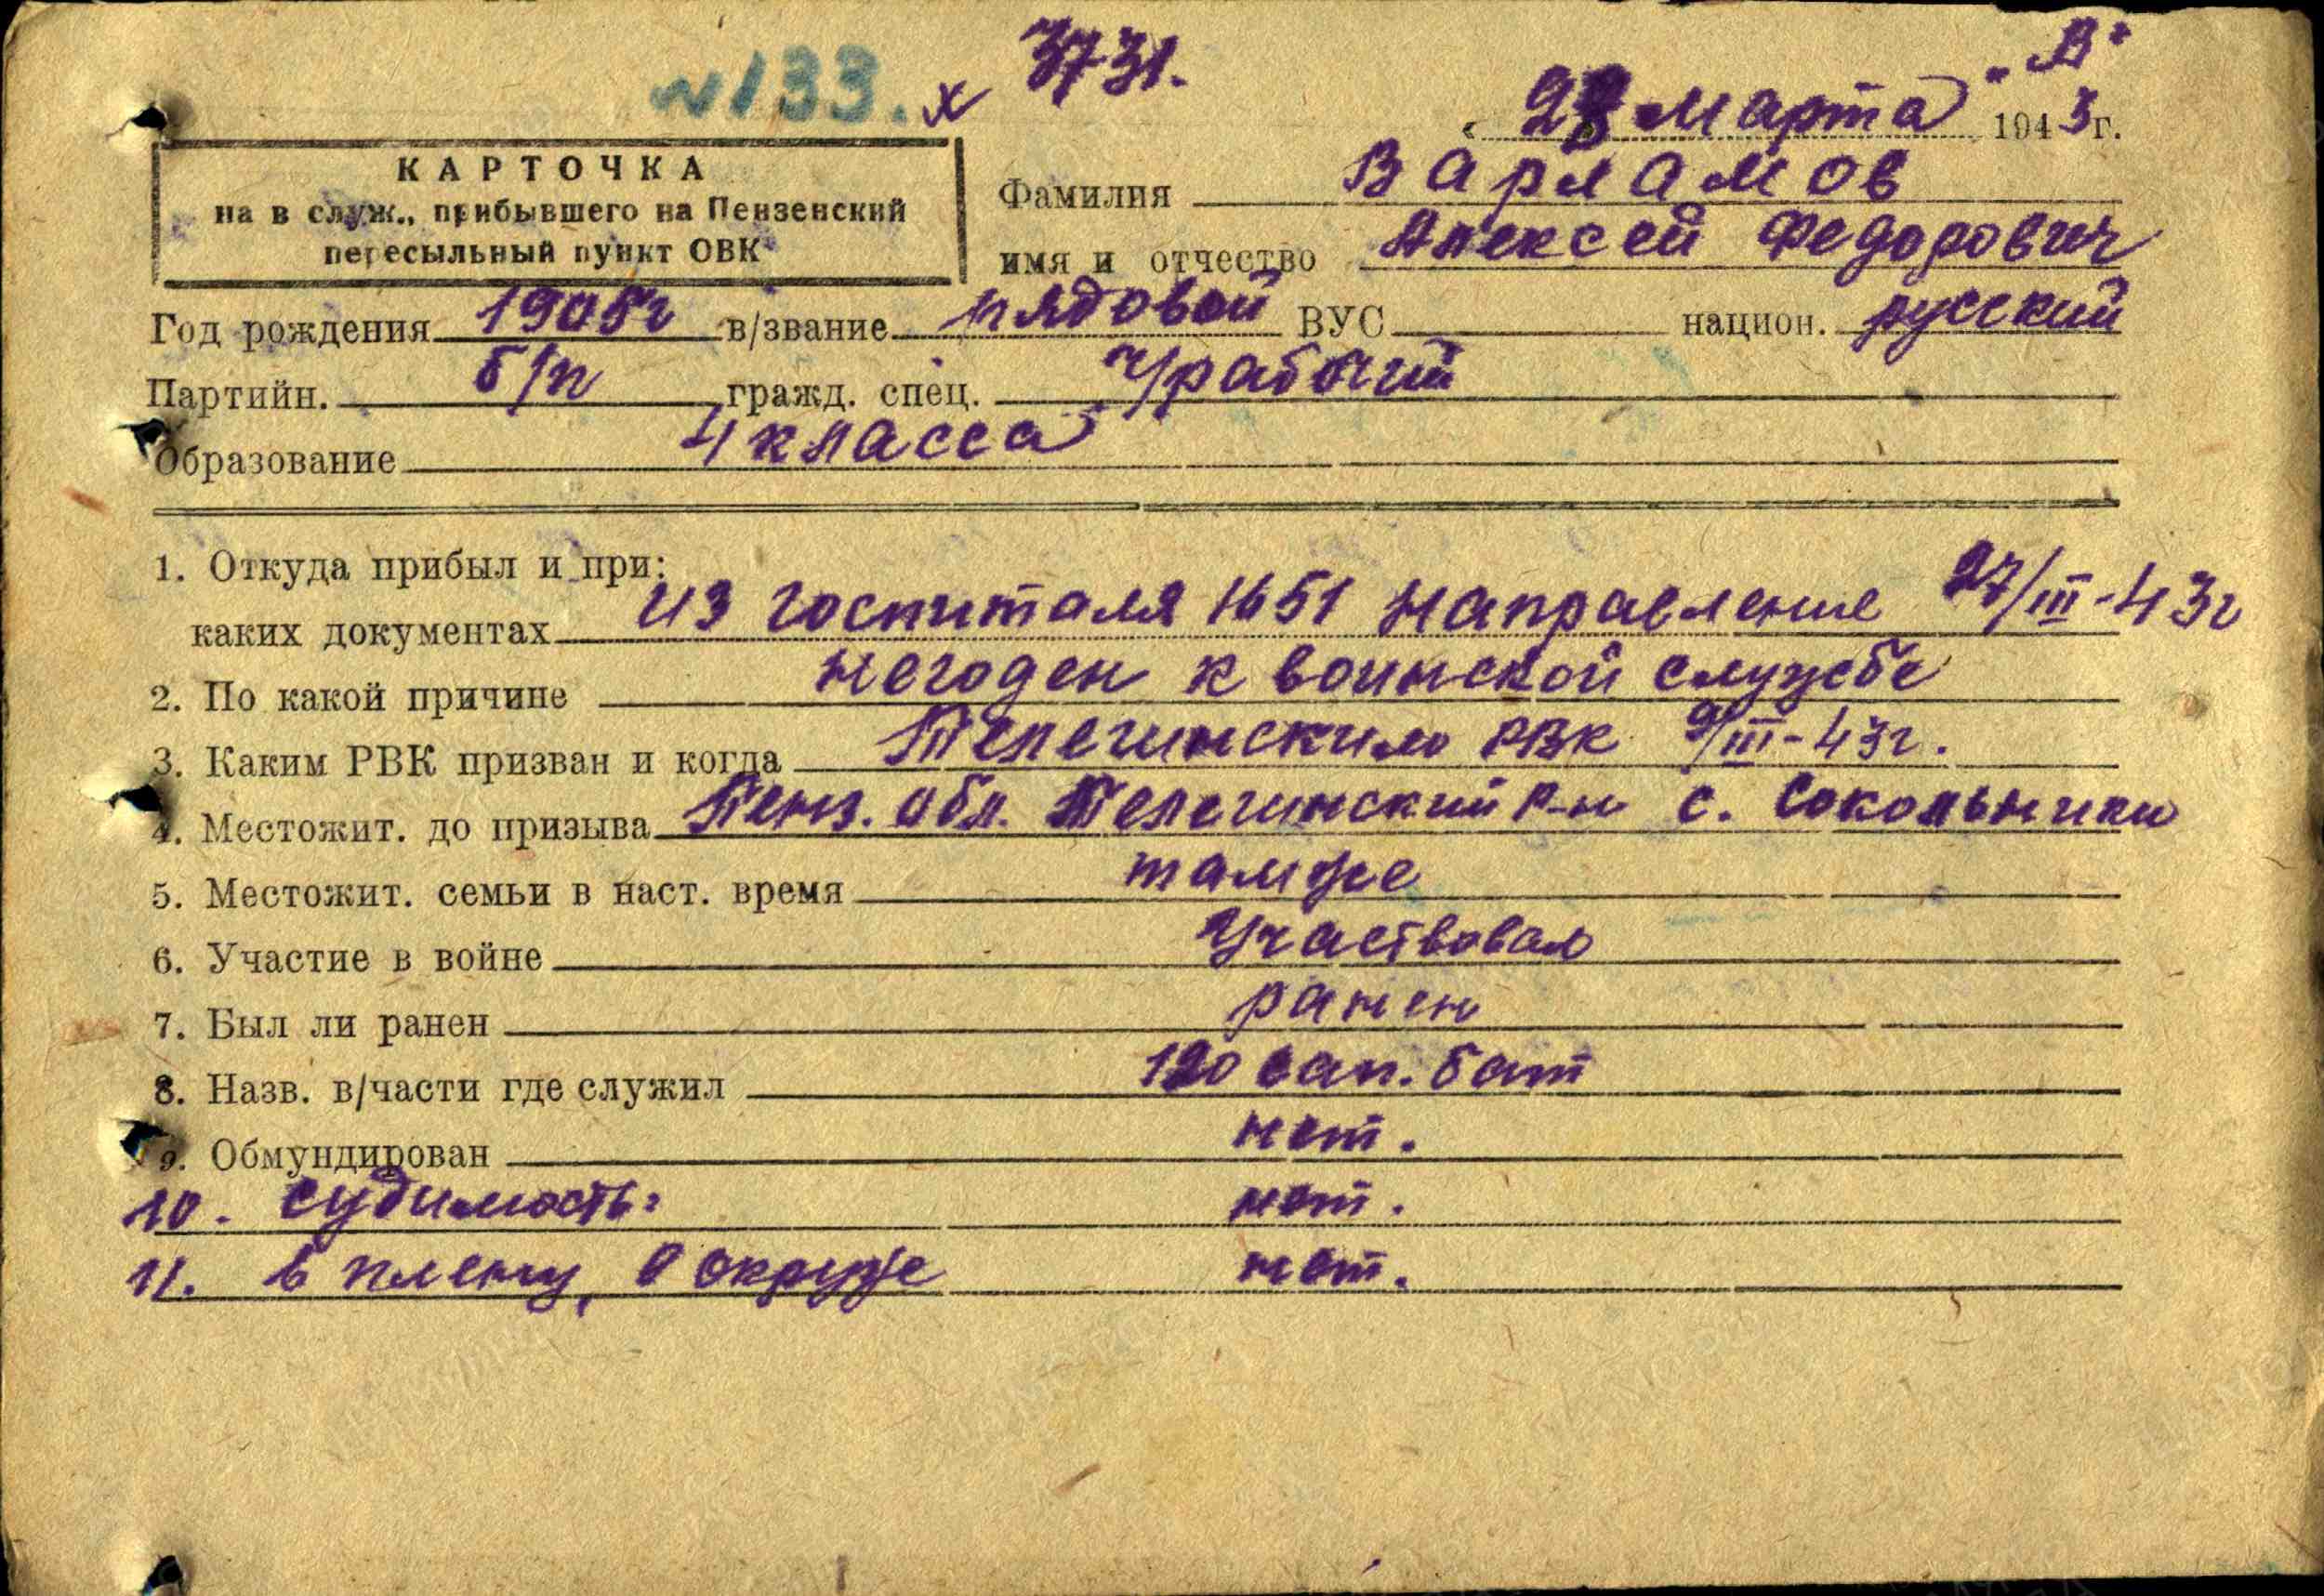 №133. х 3731. "В"
28 марта 1943г.
КАРТОЧКА
на в служ., прибывшего на Пензенский
пересыльный пункт ОВК
Фамилия Варламов
имя и отчество Алексей Федорович
Год рождения 1905г в/звание рядовой ВУС национ. русский
Партийн. б/п гражд. спец. ч/рабочий
Образование 4 класса
1. Откуда прибыл и при:
каких документах из госпиталя 1651 направление 27/III-43г
2. По какой причине негоден к воинской службе
3. Каким РВК призван и когда Телегинским РВК 9/III-43г.
4. Местожит. до призыва Пенз. обл. Телегинский р-н с. Сокольники
5. Местожит. семьи в наст. время тамже
6. Участие в войне Участвовал
7. Был ли ранен ранен
8. Назв. в/части где служил 120 сап. бат
9. Обмундирован нет.
10. Судимость: нет.
11. в плену, в окруже нет.